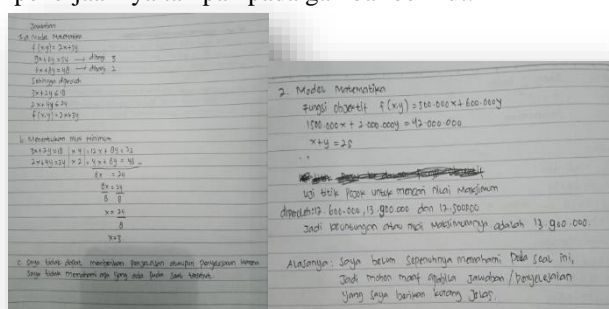 Jawaban
Model Matematika
f(x,y) = 2x+3y
9x+6y=54 → dibagi 3
4x+8y=48 → dibagi 2
Sehingga diperoleh
3x+2y≤18
2x+4y≤24
f(x,y)=2x+3y
b. Menentukan nilai minimum
3x+2y=18 | x4 | = 12x + 8y = 72
2x+4y=24 | x2 | = 4x+8y = 48 -
8x = 24
8x = 24
8 8
x = 24
8
x=3
c. Saya tidak dapat memberikan penjelasan ataupun penyelesaian karena
Saya tidak memahami apa yang ada pada soal tersebut.
2. Model Matematika
Fungsi objektif f(x,y) = 500.000x + 600.000y
1.500.000x + 2.000.000y = 42.000.000
x+y = 25
Uji titik pojok untuk mencari nilai maksimum
diperoleh: 12.600.000, 13.900.000 dan 12.500.000
Jadi keuntungan atau nilai maksimumnya adalah 13.900.000.
Alasannya: Saya belum sepenuhnya memahami pada soal ini,
Jadi mohon maaf apabila jawaban / penyelesaian
yang saya berikan kurang jelas.